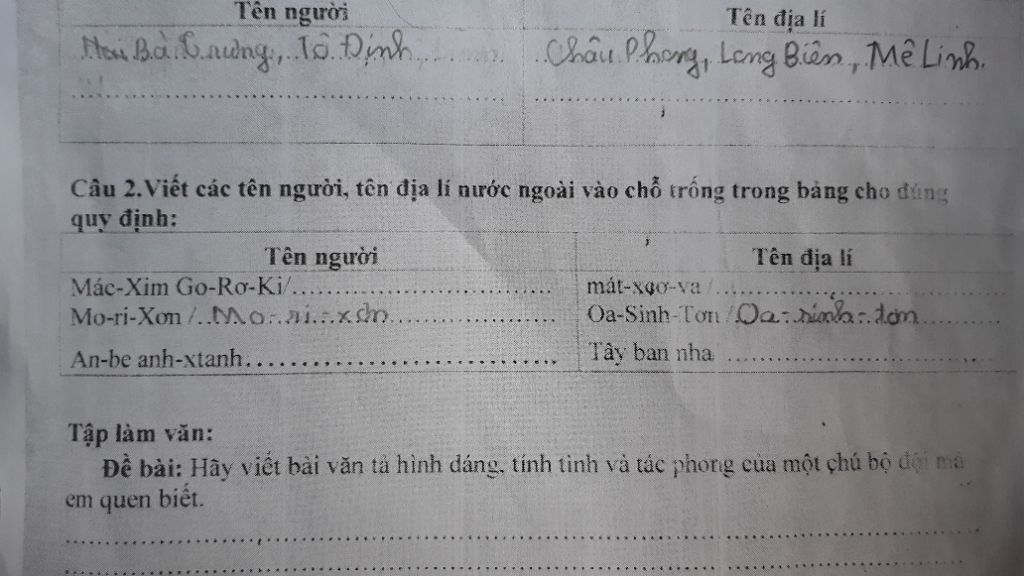 Tên người Tên địa lí
Hai Bà Trưng, Tô Định Châu Phong, Long Biên, Mê Linh.
Câu 2.Viết các tên người, tên địa lí nước ngoài vào chỗ trống trong bảng cho đúng
quy định:
Tên người Tên địa lí
Mác-Xim Go-Rơ-Ki/.............................. mát-xcơ-va /..............................
Mo-ri-Xơn /..Mo-ri-xơn.................. Oa-Sinh-Tơn /Oa-sinh-tơn............
An-be anh-xtanh.............................. Tây ban nha ..............................
Tập làm văn:
Đề bài: Hãy viết bài văn tả hình dáng, tính tình và tác phong của một chú bộ đội mà
em quen biết.